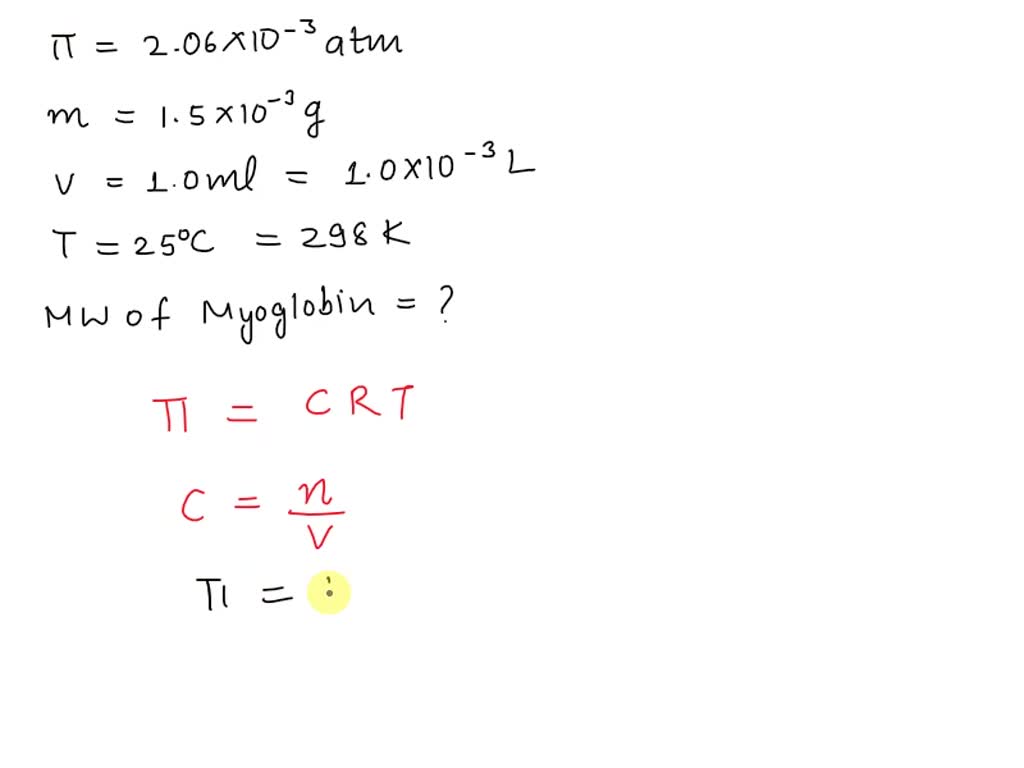 π = 2.06×10⁻³ atm
m = 1.5×10⁻³ g
v = 1.0ml = 1.0×10⁻³ L
T = 25°C = 298 K
MW of Myoglobin = ?
π = CRT
C = n/v
π =